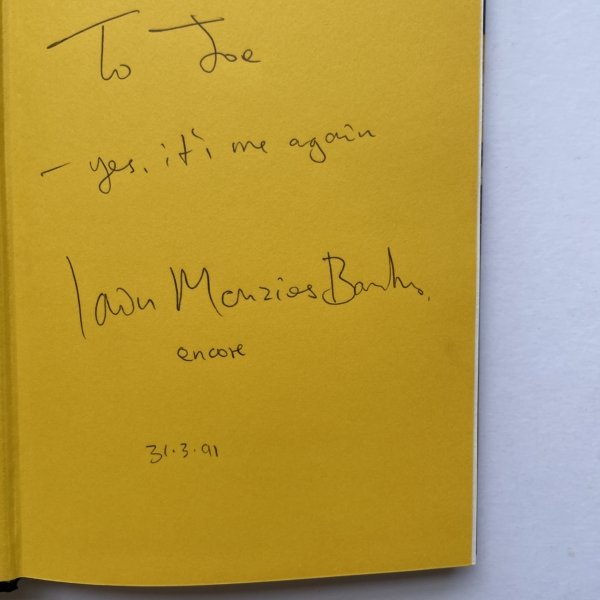 To Joe
- yes, it's me again
Iain Menzies Banks.
encore
31.3.91